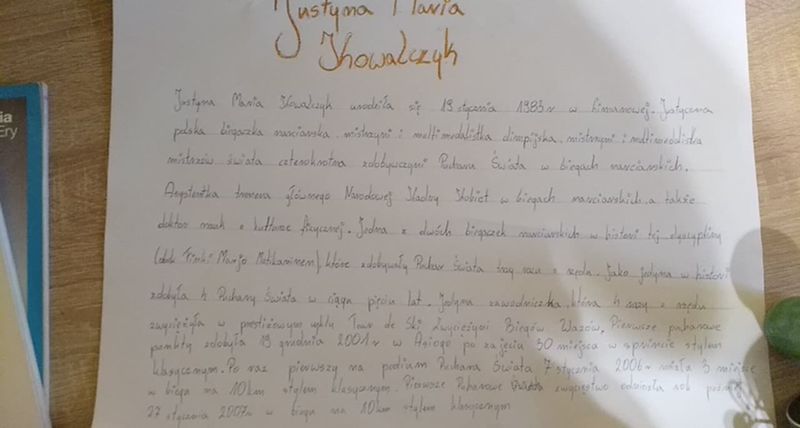 Justyna Maria
Kowalczyk
Justyna Maria Kowalczyk urodziła się 19 stycznia 1983 r w Limanowej. Justyczna
polska biegaczka narciarska, mistrzyni i multimedalistka olimpijska, mistrzyni i multimedalistka
mistrzów świata czterokrotna zdobywczyni Puchara Świata w biegach narciarskich.
Asystentka trenera głównego Narodowej Kadry Kobiet w biegach narciarskich, a także
doktor nauk o kulturze fizycznej. Jedna z dwóch biegaczek narciarskich w histori tej dyscypliny
(obok Finki Marjo Matikainen), które zdobywały Puchar Świata trzy razy z rzędu. Jako jedyna w histori
zdobyła 4 Puchary Świata w ciągu pięciu lat. Jedyna zawodniczka, która 4 razy z rzędu
zwyciężyła w prestiżowym cyklu Tour de Ski Zwyciężyni Biegów Wazów. Pierwsze pucharowe
punkty zdobyła 19 grudnia 2001 r w Asiago po zajęciu 30 miejsca w sprincie stylem
klasycznym. Po raz pierwszy na podium Puchara Świata 7 stycznia 2006 r miała 3 miejsce
w biegu na 10 km stylem klasycznym. Pierwsze Pucharowe zwycięstwo odniosła rok później
27 stycznia 2007 r w biegu na 10 km stylem klasycznym
ia
Ery